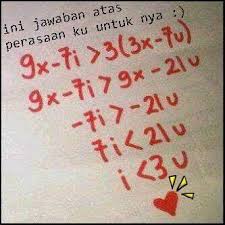 ini jawaban atas
perasaan ku untuk nya :)
9x-7i>3(3x-7u)
9x-7i>9x-21u
-7i>-21u
7i<21u
i<3u